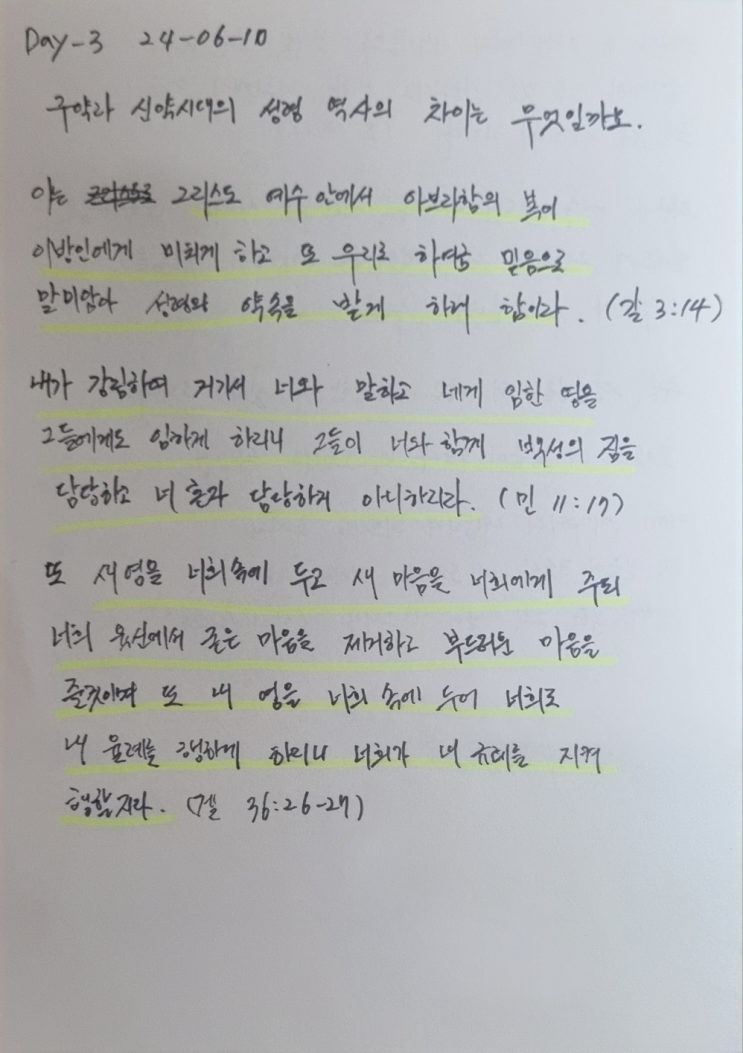 Day-3 24-06-10
구약과 신약시대의 성령 역사의 차이는 무엇일까요.
이는 그리스도 예수 안에서 아브라함의 복이
이방인에게 미치게 하고 또 우리로 하여금 믿음으로
말미암아 성령의 약속을 받게 하려 함이라. (갈 3:14)
내가 강림하여 거기서 너와 말하고 네게 임한 영을
그들에게도 임하게 하리니 그들이 너와 함께 백성의 짐을
담당하고 너 혼자 담당하지 아니하리라. (민 11:17)
또 새 영을 너희 속에 두고 새 마음을 너희에게 주되
너희 육신에서 굳은 마음을 제거하고 부드러운 마음을
줄것이며 또 내 영을 너희 속에 두어 너희로
내 율례를 행하게 하리니 너희가 내 규례를 지켜
행할지라. (겔 36:26-27)